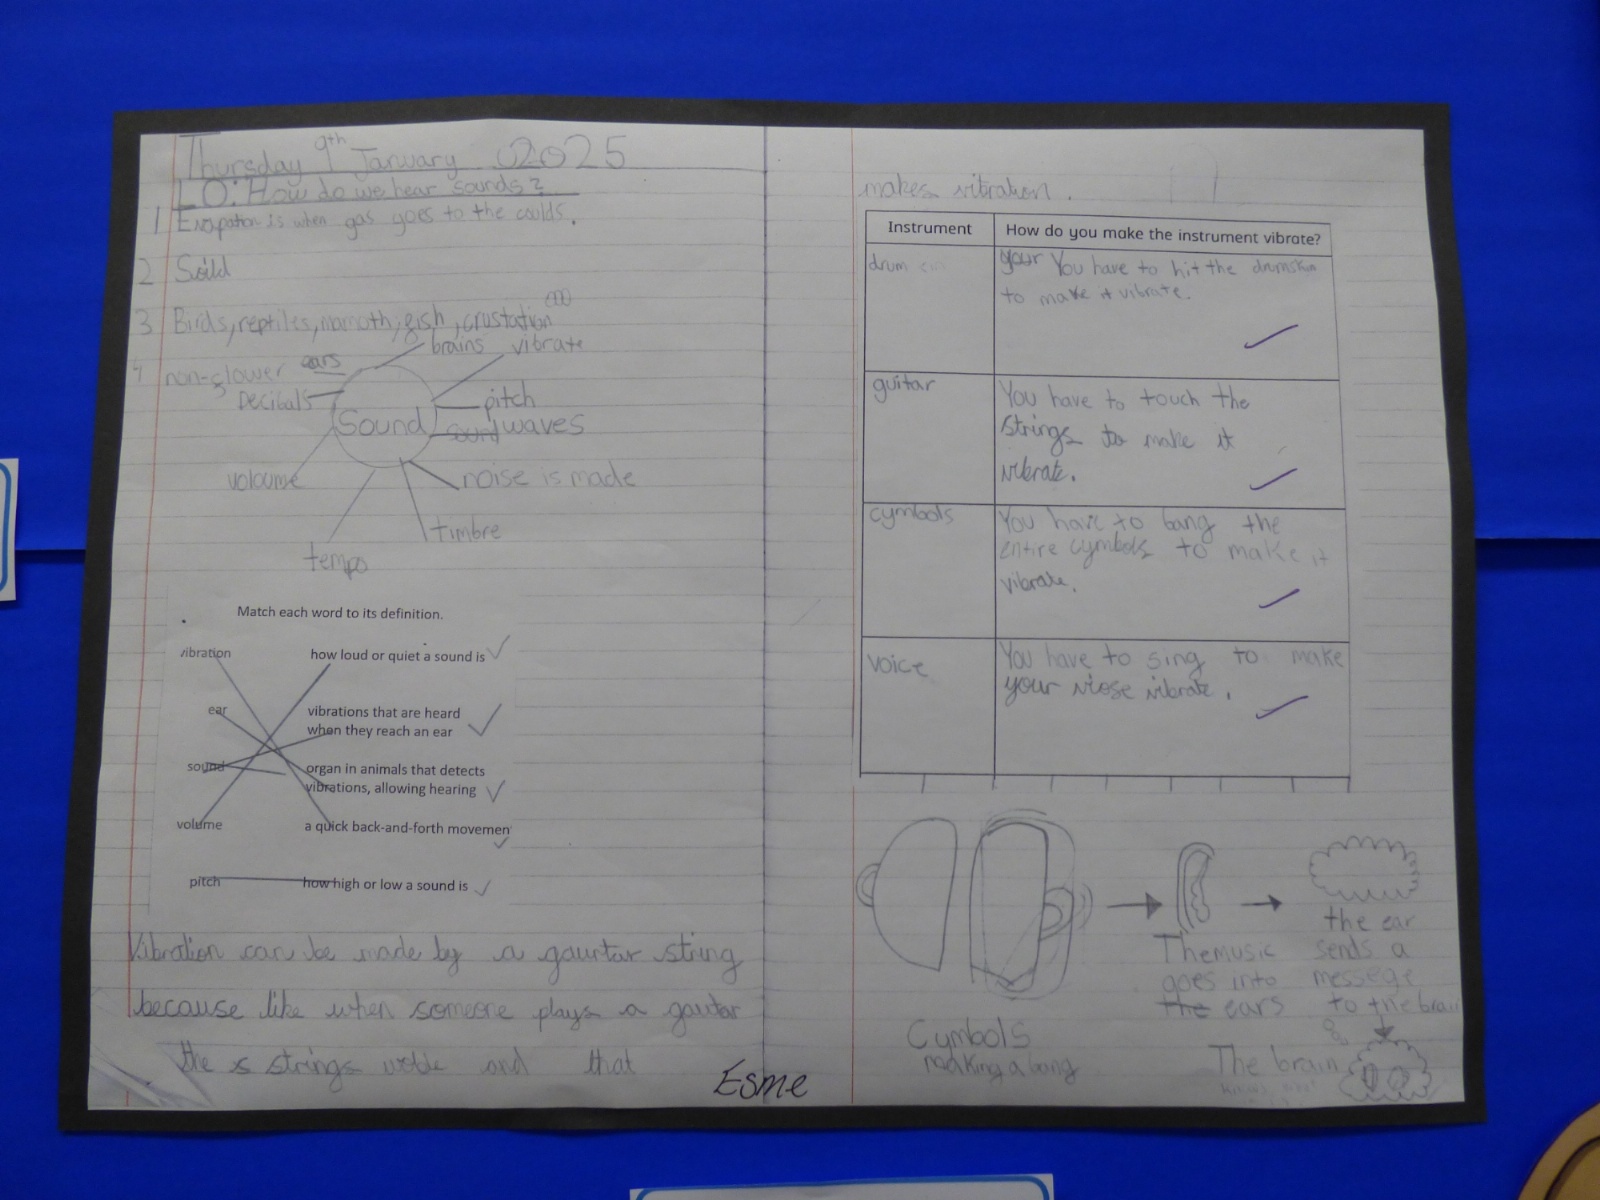 Thursday 9th January 2025
LO: How do we hear sounds?
1 Evapation is when gas goes to the coulds.
2 Soild
3 Birds, reptiles, mamoth, fish, crustation
4 non-flower
ears
brains
vibrate
Decibals
pitch
Sound
sound waves
voloume
noise is made
timbre
tempo
Match each word to its definition.
vibration
how loud or quiet a sound is
ear
vibrations that are heard
when they reach an ear
sound
organ in animals that detects
vibrations, allowing hearing
volume
a quick back-and-forth movemen
pitch
how high or low a sound is
Vibration can be made by a gauitar string
because like when someone plays a gautar
the s strings woble and that
Esme
makes vibration.
Instrument
How do you make the instrument vibrate?
drum
your You have to hit the drumskin
to make it vibrate.
guitar
You have to touch the
strings to make it
vibrate.
cymbols
You have to bang the
entire cymbols to make it
vibrate.
voice
You have to sing to make
your viose vibrate.
Cymbols
making a bang
The music
goes into
the ears
the ear
sends a
messege
to the brain
The brain